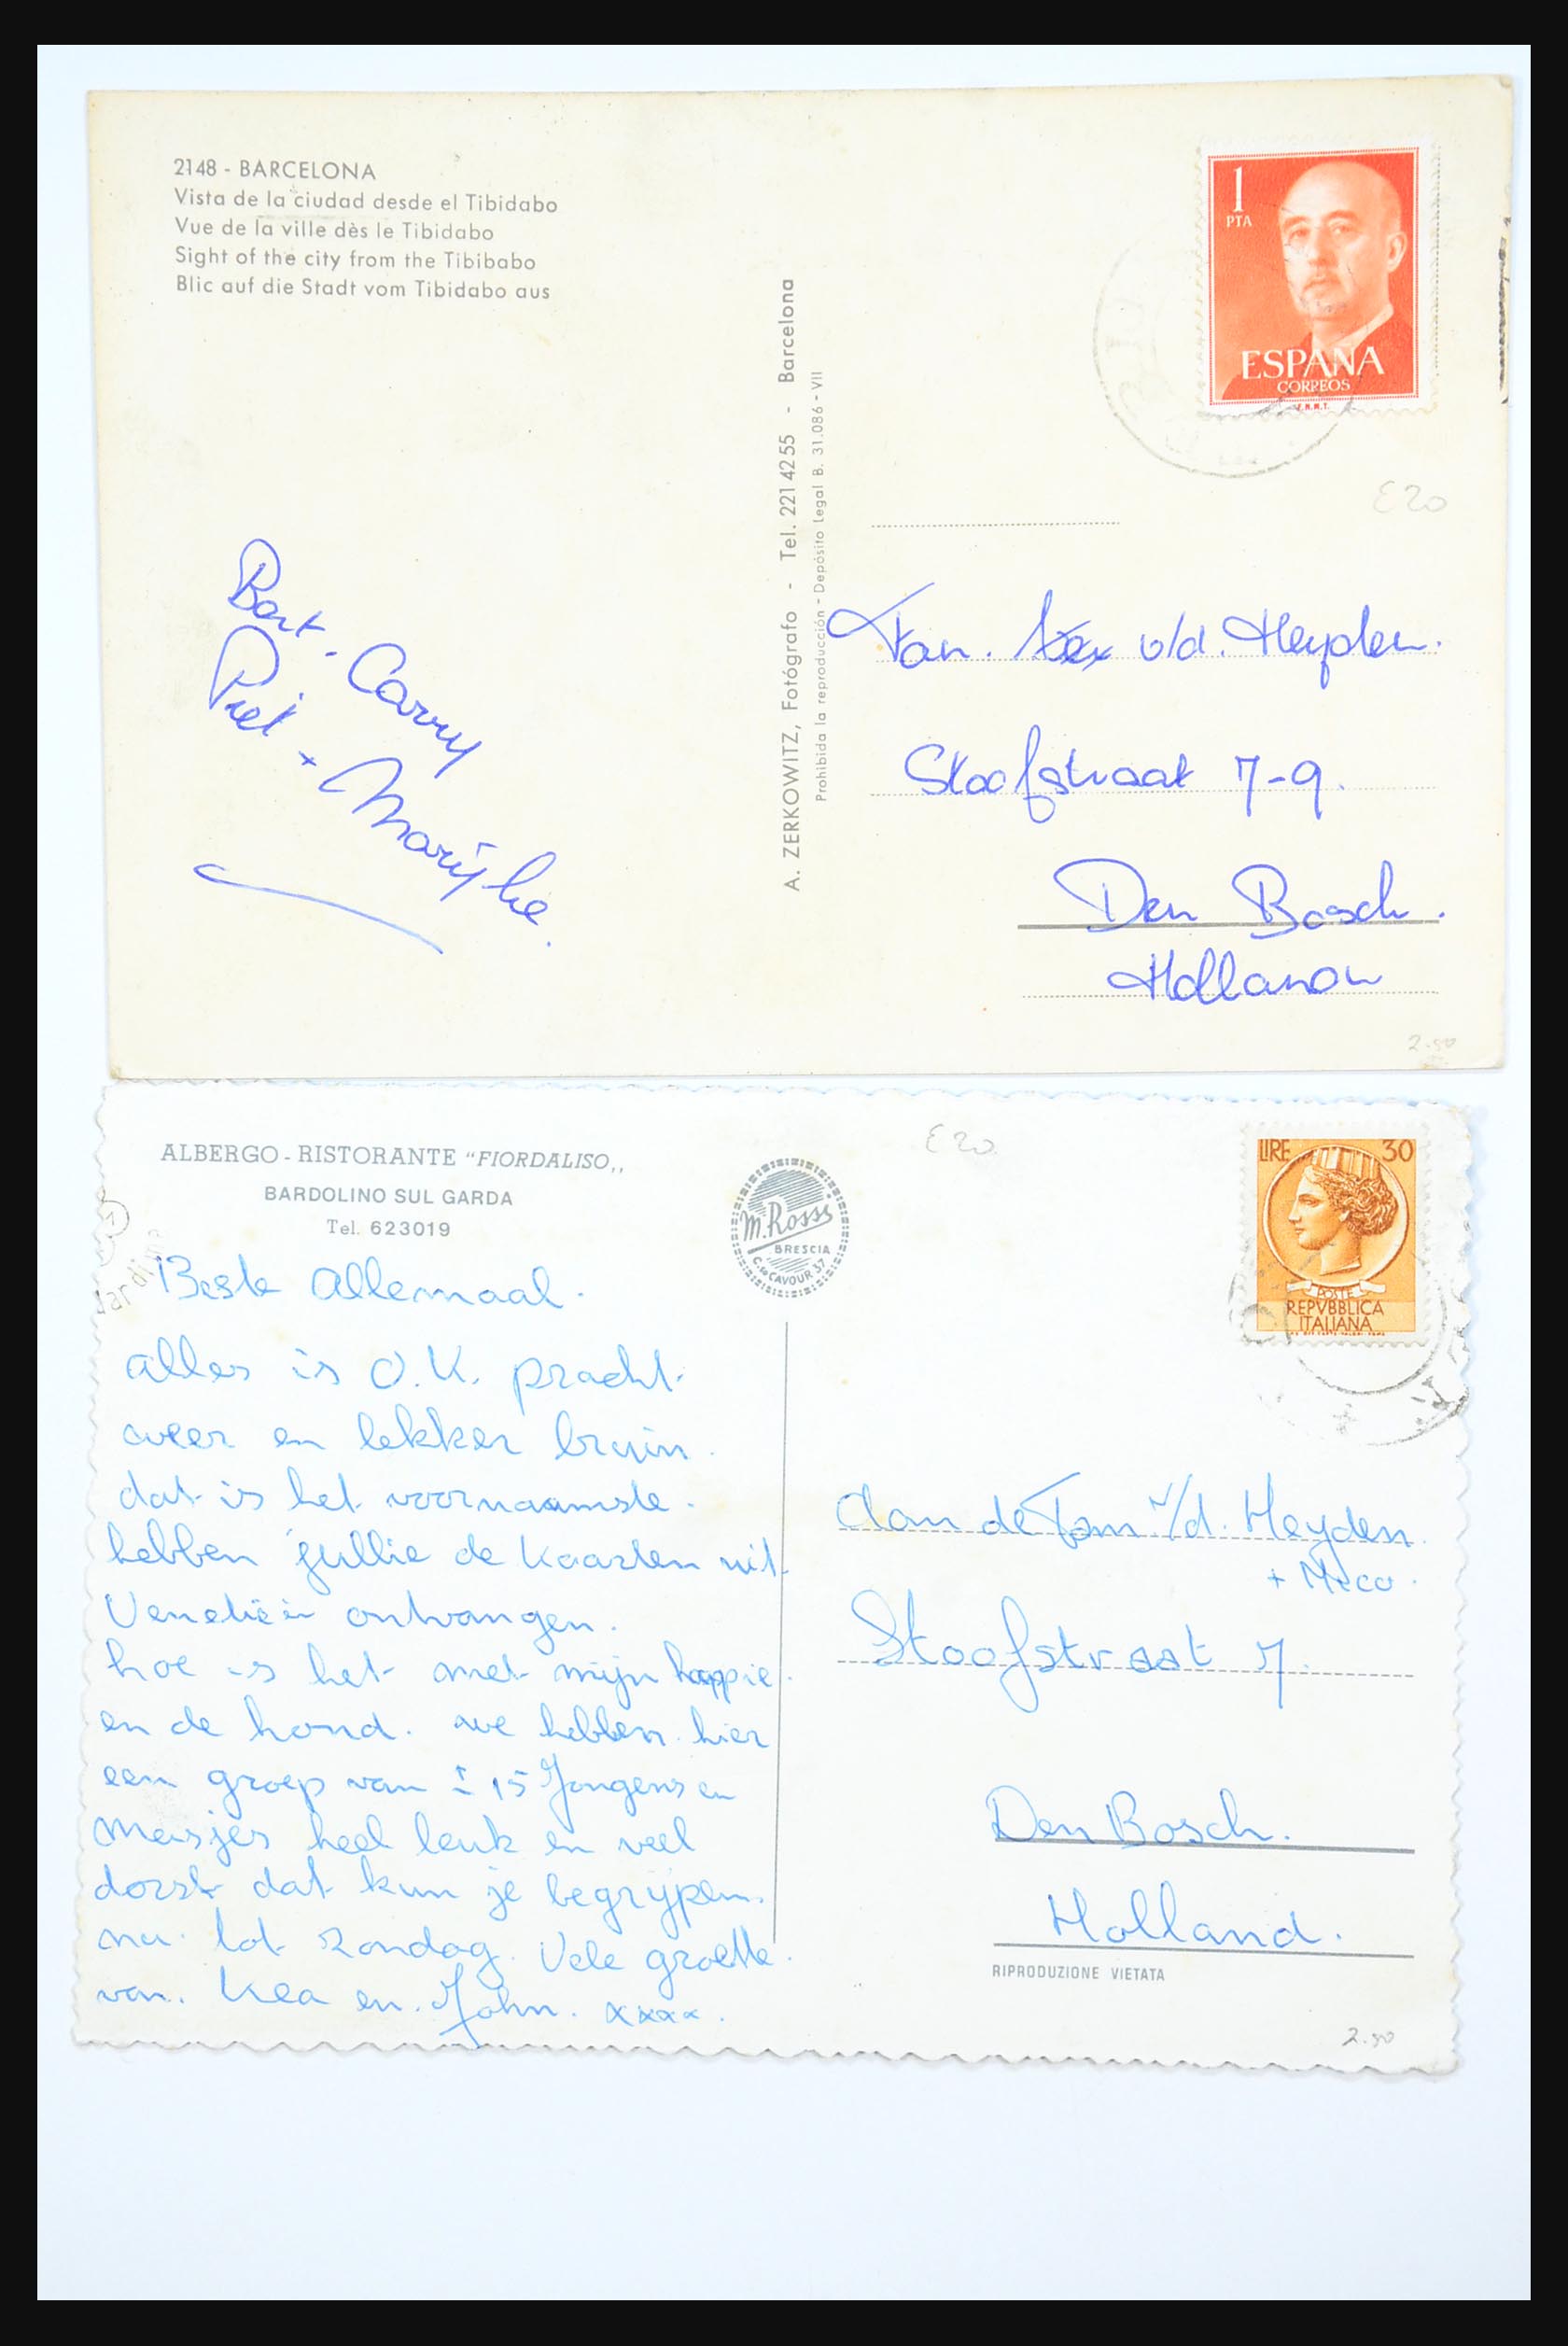 2148 - BARCELONA
Vista de la ciudad desde el Tibidabo
Vue de la ville dès le Tibidabo
Sight of the city from the Tibibabo
Blic auf die Stadt vom Tibidabo aus
1
PTA
ESPAÑA
CORREOS
F.N.M.T.
E20
A. ZERKOWITZ, Fotógrafo - Tel. 221 42 55 - Barcelona
Prohibida la reproducción - Depósito Legal B. 31.086 - VII
Bart - Carry
Piet + Marijke.
Fam. v/d. Heyden.
Stoofstraat 7-9.
Den Bosch.
Holland
2.50
ALBERGO - RISTORANTE "FIORDALISO„
BARDOLINO SUL GARDA
Tel. 623019
M. Rossi
BRESCIA
C.so CAVOUR 37
E20
LIRE 30
POSTE
REPVBBLICA
ITALIANA
Beste allemaal.
alles is O.K. pracht
weer en lekker bruin.
dat is het voornaamste.
hebben jullie de kaarten uit
Venetieën ontvangen.
hoe is het met mijn
en de hond. we hebben hier
een groep van ± 15 Jongens en
meisjes heel leuk en veel
dorst dat kun je begrijpen.
nu tot zondag. Vele groette.
van. Kea en John. xxxx.
Aan de Fam v/d. Heyden.
+ Mico.
Stoofstraat 7.
Den Bosch.
Holland.
RIPRODUZIONE VIETATA
2.50